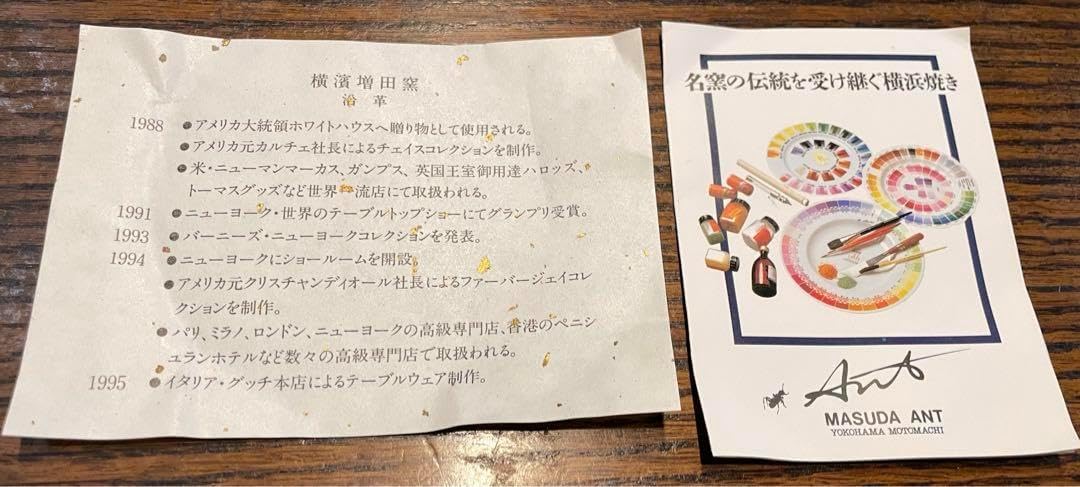 横濱増田窯
沿革
1988 ●アメリカ大統領ホワイトハウスへ贈り物として使用される。
●アメリカ元カルチェ社長によるチェイスコレクションを制作。
●米・ニューマンマーカス、ガンプス、英国王室御用達ハロッズ、
トーマスグッズなど世界一流店にて取扱われる。
1991 ●ニューヨーク・世界のテーブルトップショーにてグランプリ受賞。
1993 ●バーニーズ・ニューヨークコレクションを発表。
1994 ●ニューヨークにショールームを開設。
●アメリカ元クリスチャンディオール社長によるファーバージェイコレ
クションを制作。
●パリ、ミラノ、ロンドン、ニューヨークの高級専門店、香港のペニシ
ュランホテルなど数々の高級専門店で取扱われる。
1995 ●イタリア・グッチ本店によるテーブルウェア制作。
名窯の伝統を受け継ぐ横浜焼き
Ant
MASUDA ANT
YOKOHAMA MOTOMACHI